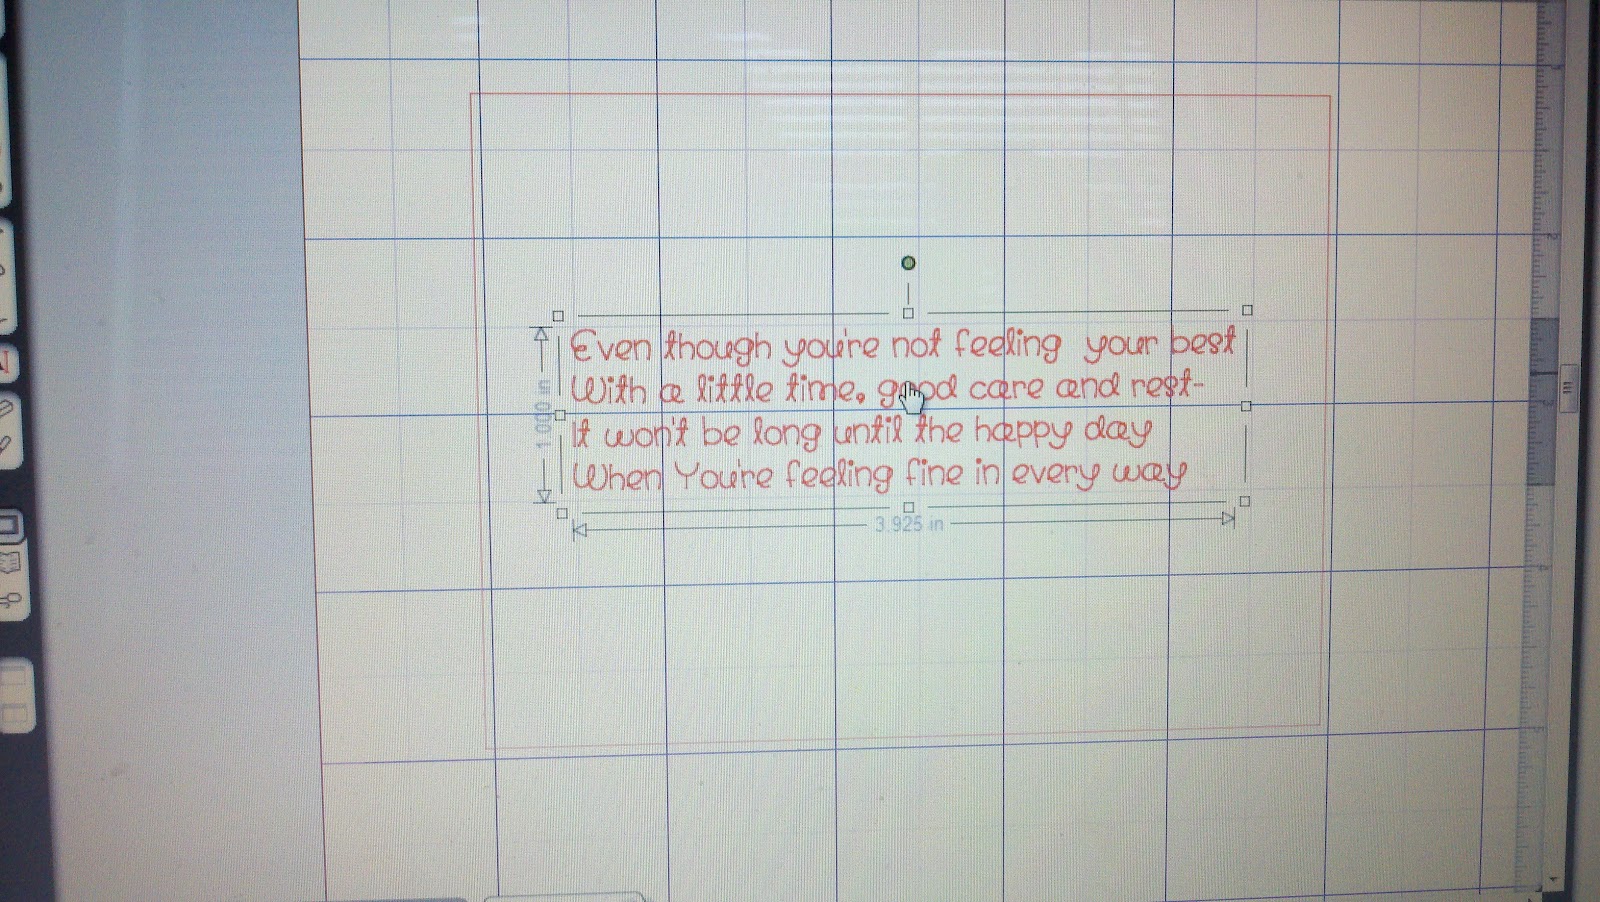 Even though you're not feeling your best
With a little time. good care and rest-
It won't be long until the happy day
When You're feeling fine in every way
1.000 in
3.925 in